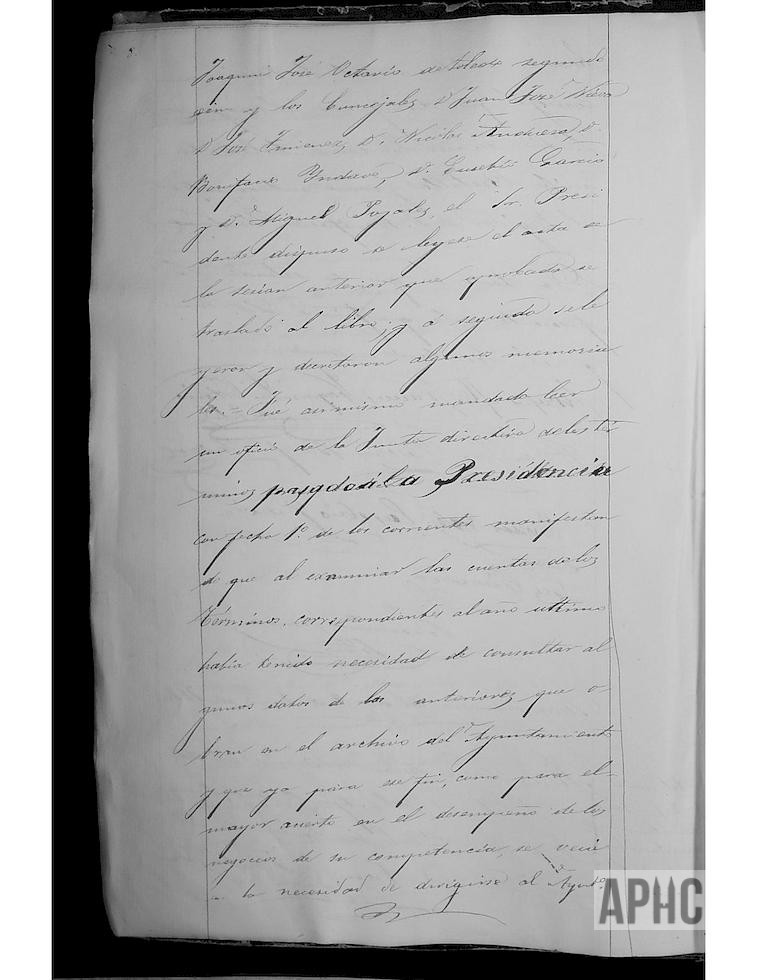 Joaquin José Octavio de toledo segundo
y los Concejales D Juan José
D José Jimenez, D. Nicolas D.
Bonifacio D. Eusebio Garcia
y D. Miguel el Sr. Presi
dente dispuso se leyese el acta de
la sesion anterior que aprobada se
traslado al libro, y á seguida se le
yeron y decretaron algunos memoria
les. = Fué asimismo mandado leer
un oficio de la Junta directiva de los tér
minos a la Presidencia
con fecha 1º. de los corrientes manifestan
do que al examinar las cuentas de los
Términos, correspondientes al año ultimo
habia tenido necesidad de consultar al
gunos datos de las anteriores que o
bran en el archivo del Ayuntamiento
y que ya para ese fin, como para el
mayor acierto en el desempeño de los
negocios de su competencia, se veia
en la necesidad de dirigirse al Ayunto.
APHC